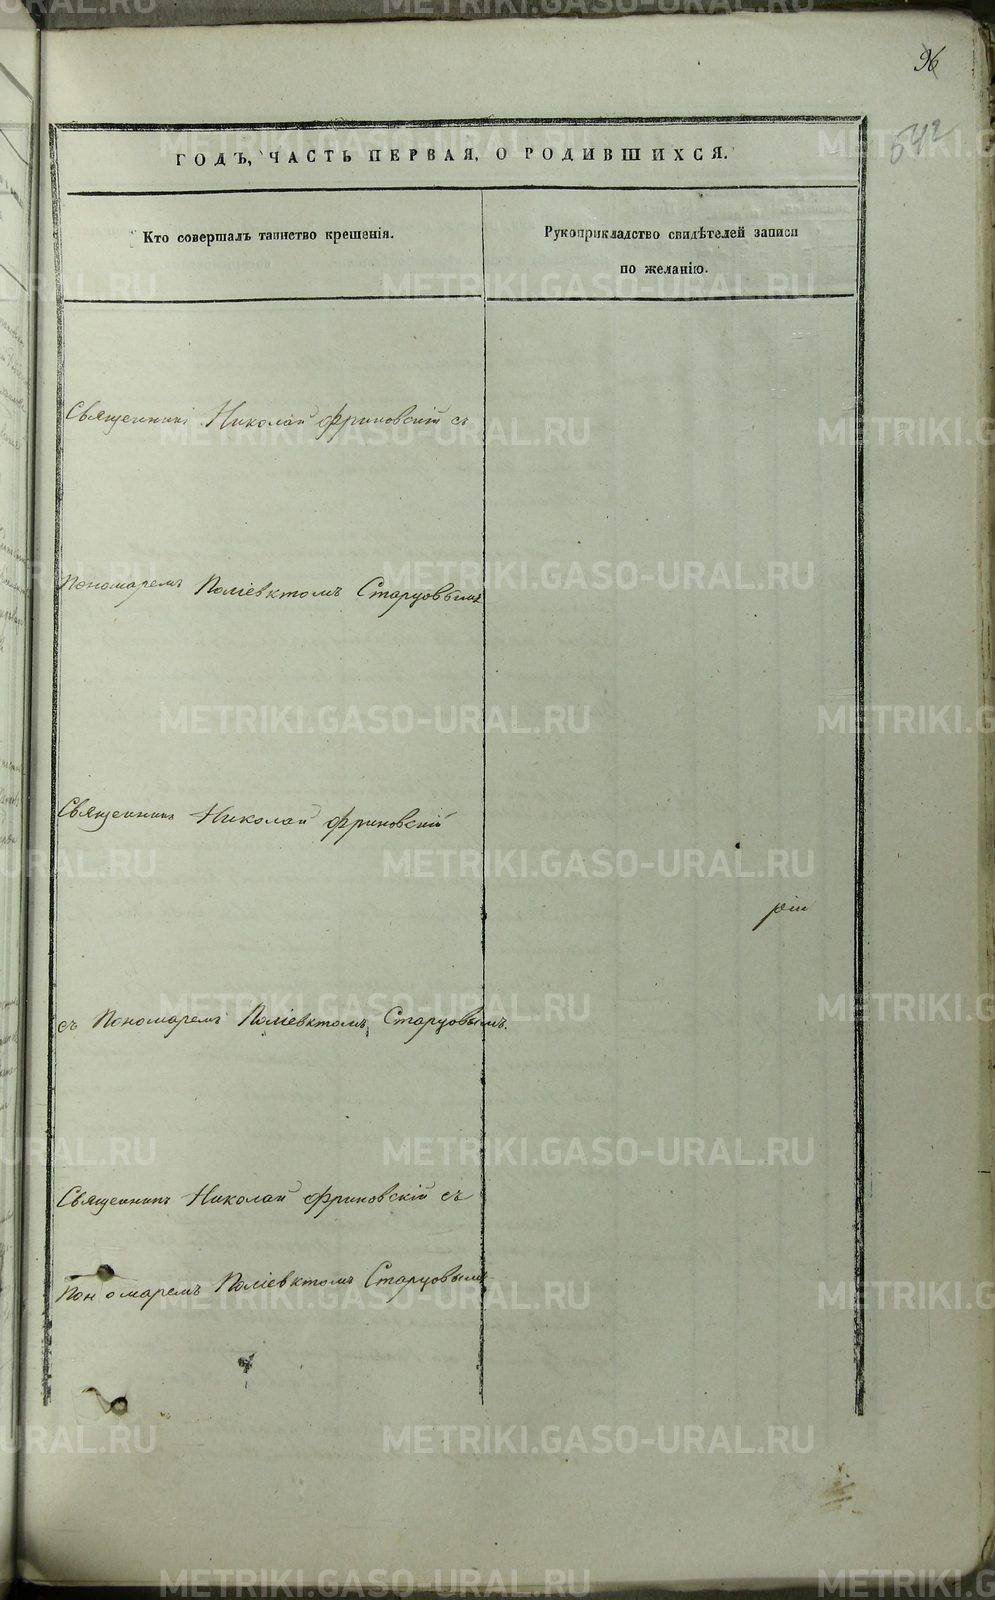 96
542
ГОДЪ, ЧАСТЬ ПЕРВАЯ, О РОДИВШИХСЯ.
Кто совершалъ таинство крещенія.
Рукоприкладство свидѣтелей записи
по желанію.
Священникъ Николай Фриновскій съ
Пономаремъ Поліевктомъ Старцовымъ
Священникъ Николай Фриновскій
съ Пономаремъ Поліевктомъ Старцовымъ.
Священникъ Николай Фриновскій съ
Пономаремъ Поліевктомъ Старцовымъ
METRIKI.GASO-URAL.RU